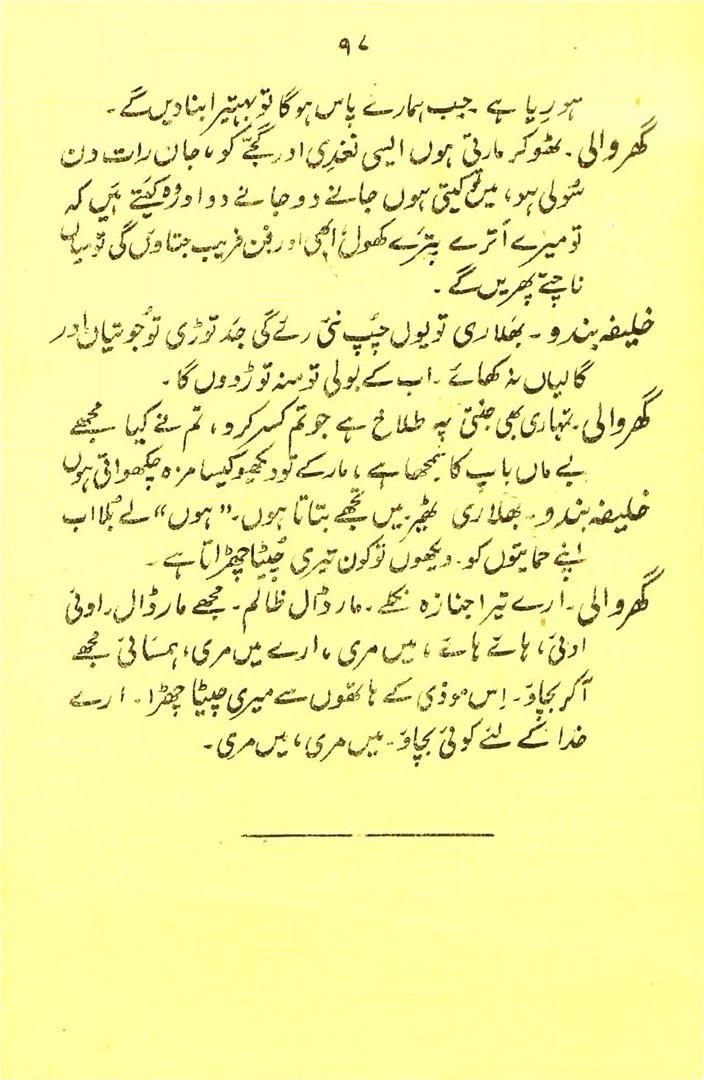 ۹۷
ہو رِیا ہے ۔ جب ہمارے پاس ہوگا تو بہتیرا بنا دیں گے۔
گھر والی ۔ ٹھوکر مارتی ہوں ایسی نغدی اور گجّے کو، جان رات دن
سُولی ہو، میں تو کیتی ہوں جانے دو جانے دو اور وُہ کَیتے ہیں کہ
تو میرے اُترے پترے کھول، ابھی اور فن فریب جتاوں گی تو میاں
ناچتے پھریں گے ۔
خلیفہ بندو ۔ بھلا ری تو یوں چُپ نئی رئے گی جد توڑی تو جوتیاں اور
گالیاں نہ کھائے ۔ اب کے بولی تو منہ توڑ دوں گا ۔
گھر والی ۔ تمہاری بھی جنتی پہ طلاخ ہے جو تم کسر کرو، تم نے کیا مجھے
بے ماں باپ کا سمجھا ہے، مار کے تو دیکھو کیسا مزہ چکھواتی ہوں
خلیفہ بندو ۔ بھلا ری ٹھیر میں تجھے بتاتا ہوں۔ ”ہوں“ لے بُلا اب
اپنے حمایتوں کو۔ دیکھوں تو کون تیری چُٹیا چھڑاتا ہے ۔
گھر والی ۔ ارے تیرا جنازہ نکلے ۔ مار ڈال ظالم ۔ مجھے مار ڈال ۔ اوئی
اوئی، ہائے ہائے، میں مری، ارے میں مری، ہمسائی مجھے
آکر بچاؤ ۔ اِس موذی کے ہاتھوں سے میری چٹیا چھڑا ۔ ارے
خدا کے لئے کوئی بچاؤ ۔ میں مری، میں مری ۔